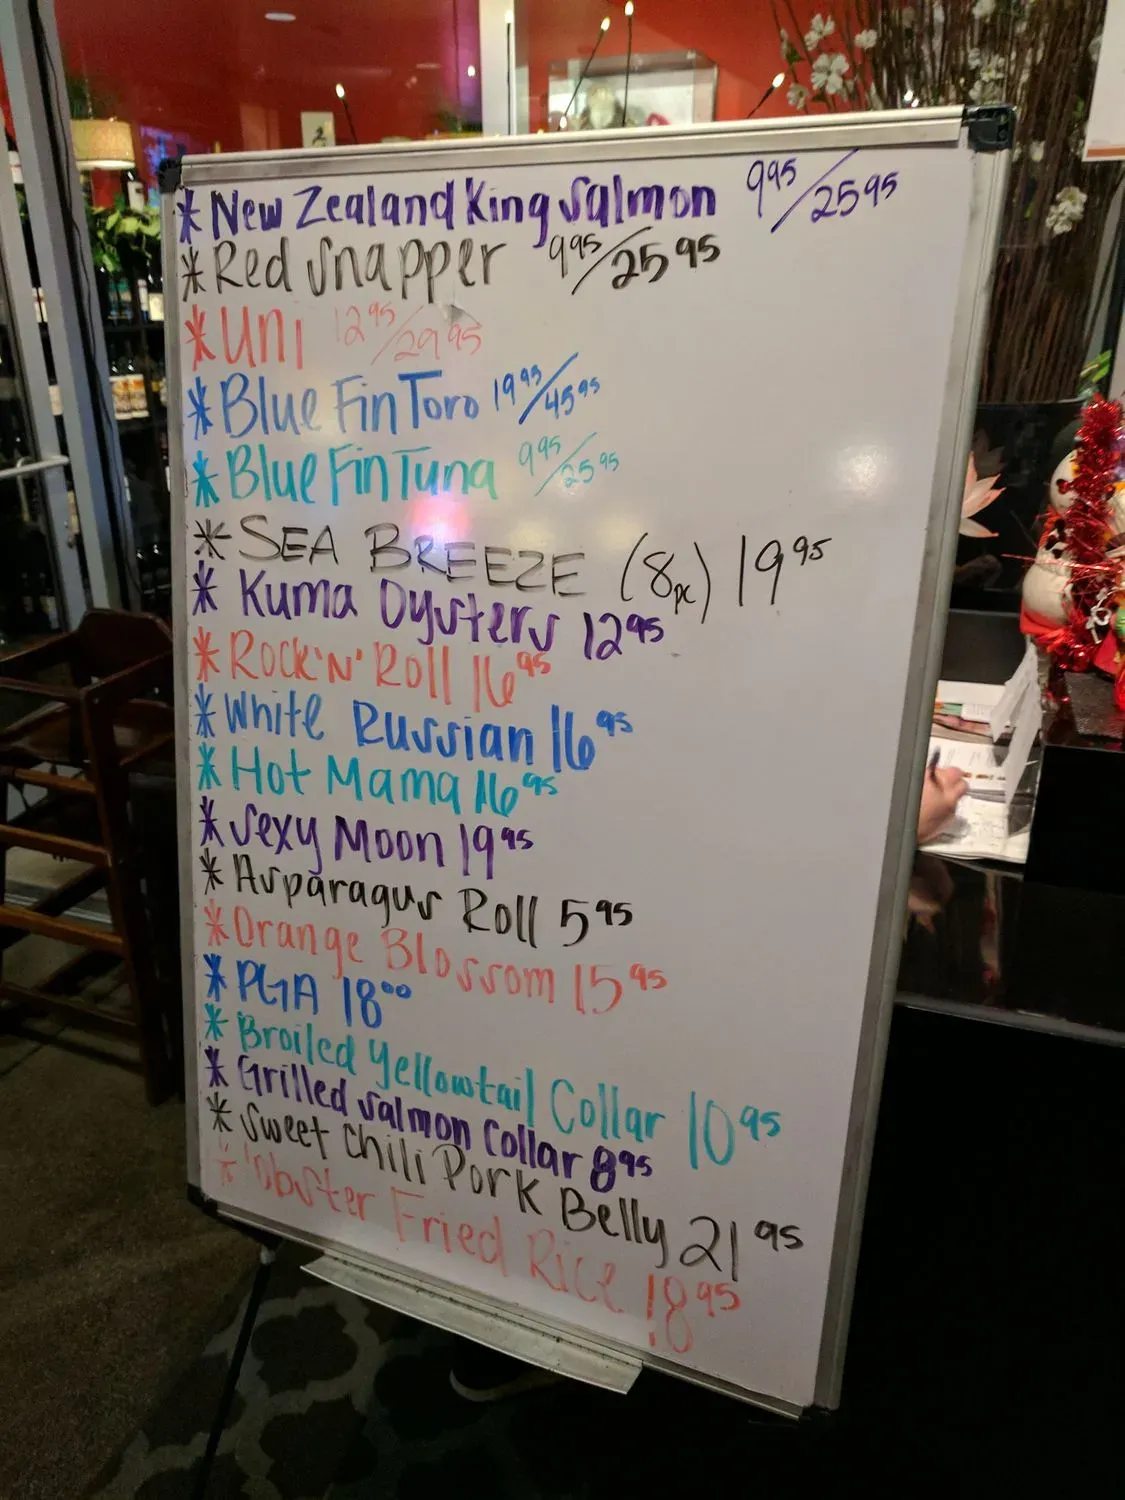 * New Zealand King Salmon 9 95/25 95
* Red Snapper 9 95/25 95
* Uni 12 95/29 95
* Blue Fin Toro 19 95/45 95
* Blue Fin Tuna 9 95/25 95
* SEA BREEZE (8pc) 19 95
* Kuma Oysters 12 95
* Rock 'N' Roll 16 95
* White Russian 16 95
* Hot Mama 16 95
* Sexy Moon 19 95
* Asparagus Roll 5 95
* Orange Blossom 15 95
* PGA 18 00
* Broiled Yellowtail Collar 10 95
* Grilled Salmon Collar 8 95
* Sweet Chili Pork Belly 21 95
* 'obster Fried Rice 18 95